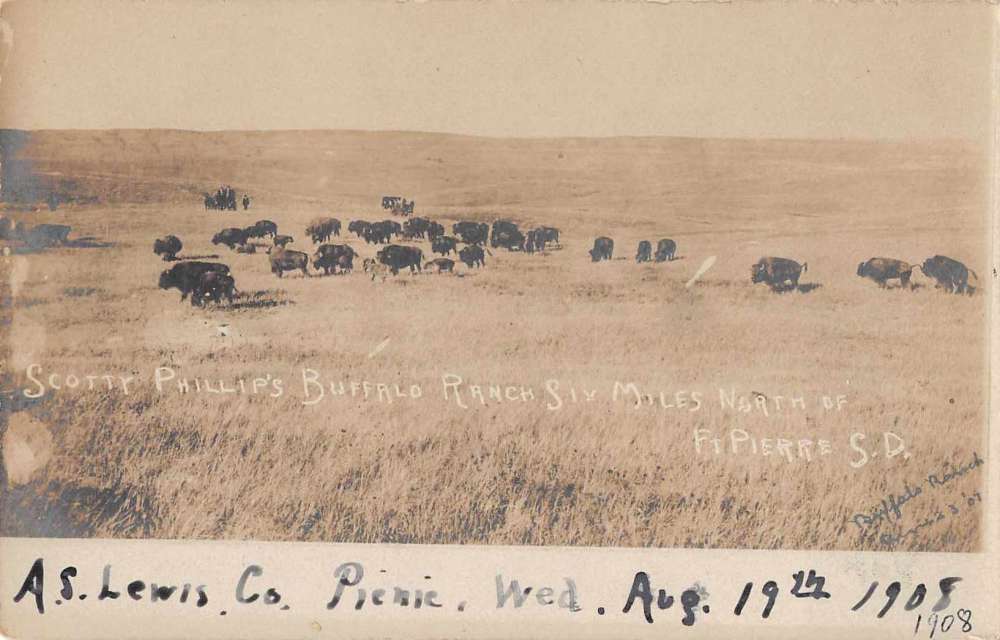 Scotty Phillip's Buffalo Ranch Six Miles North of
Ft Pierre S.D.
Buffalo Ranch
3 '07
A.S. Lewis Co. Picnic. Wed. Aug. 19th 1908
1908